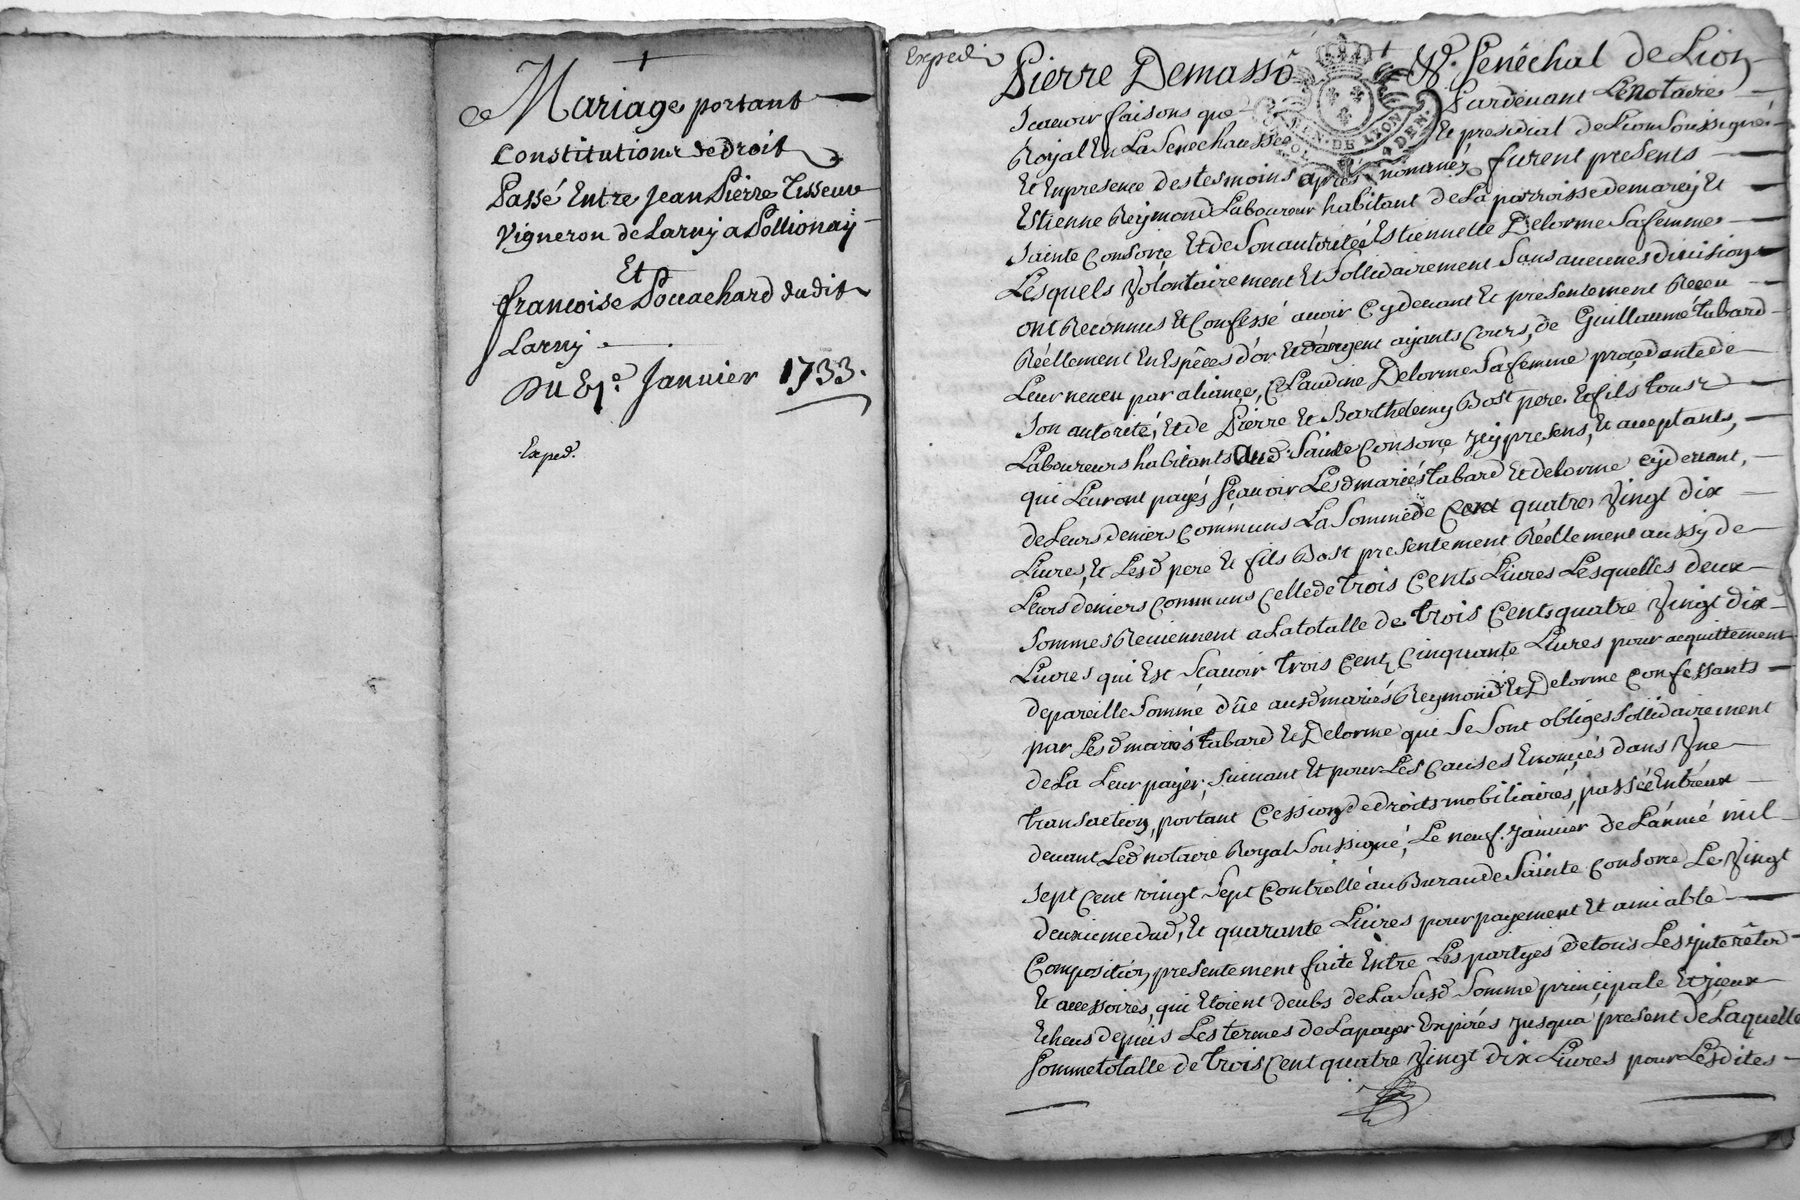 Mariage portant
Constitution de droit
Passé Entre Jean Pierre Tisseur
Vigneron de Larny a Pollionay
Et
francoise Pouachard dudit
Larny
Du 21e. Janvier 1733.
Exped.
Exped.
Pierre Demasso Sr. Senéchal de Lion
Scauoir faisons que Pardeuant Le notaire
Royal En La Senéchaussée Et presidial de Lion Soussigné
Et En presence des tesmoins apres nommés, furent presents
Estienne Reymond Laboureur habitant de La parroisse de marcy Et
Sainte Consorce Et de Son autorité Estiennette Delorme Sa femme
Lesquels Volontairement Et Sollidairement Sans aucunes diuision
ont Reconnus Et Confessé auoir Cydeuant Et presentement Receu
Réellement En Espèces d'or Et d'argent ayants Cours, de Guillaume Tabard
Leur neueu par aliance, Claudine Delorme Sa femme procedante de
Son autorité, Et de Pierre Et Barthelemy Bost pere Et fils tous
Laboureurs habitants aud. Sainte Consorce icy presens, Et acceptants,
qui Leur ont payés Scauoir Lesd mariés Tabard Et delorme cy deuant,
de Leurs deniers Communs La Somme de Cent quatre Vingt dix
Liures, Et Lesd pere Et fils Bost presentement Réellement aussy de
Leurs deniers Communs Celle de trois Cents Liures Lesquelles deux
Sommes Reuiennent a La totalle de trois Cents quatre Vingt dix
Liures qui Est Scauoir trois Cent Cinquante Liures pour acquittement
de pareille Somme düe ausd mariés Reymond Et Delorme Confessants
par Lesd mariés Tabard Et Delorme qui Se Sont obliges Sollidairement
de La Leur payer, Suiuant Et pour Les Causes Enoncés dans Vne
transaction, portant Cession de droits mobiliaires, passée Entreux
deuant Led notaire Royal Soussigné, Le neuf. Januier de L'année mil
Sept Cent vingt Sept Controllé au Bureau de Sainte Consorce Le Vingt
deuxieme dud, Et quarante Liures pour payement Et amiable
Composition, presentement faite Entre Les partyes de tous Les jnterêts
Et accessoires, qui Etoient deubs de La Susd Somme principale Et jceux
Echeus depuis Les termes de La payer Expirés jusqua present de Laquelle
Somme totalle de trois Cent quatre Vingt dix Liures pour Lesdites